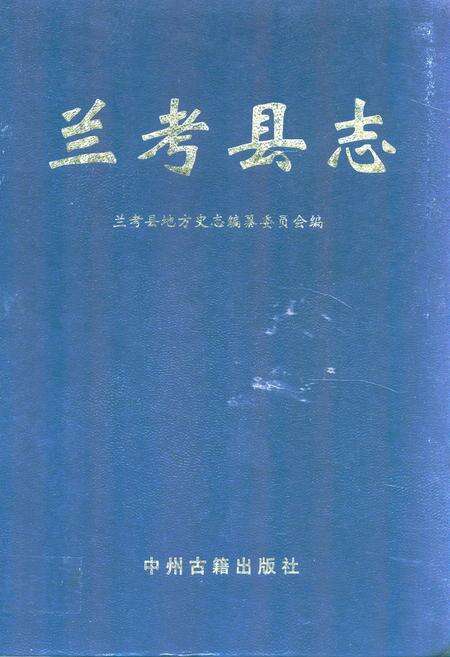 兰考县志
兰考县地方史志编纂委员会编
中州古籍出版社